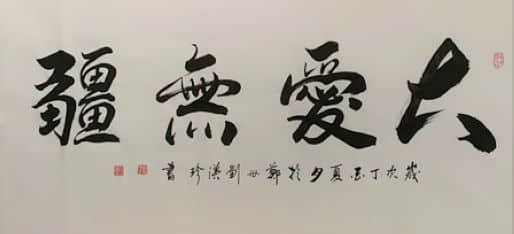 大愛無疆
歲次丁夏夕於鄭州劉漢珍書